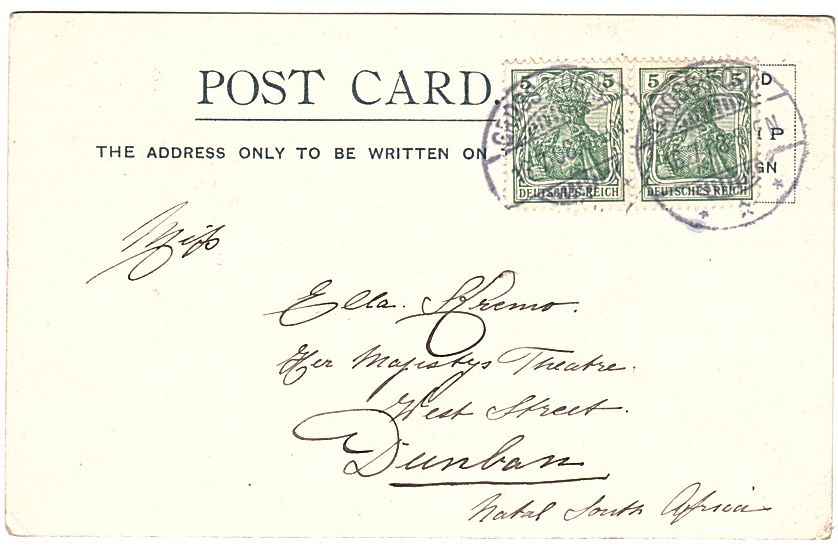 POST CARD.
5 5 5 5 D
THE ADDRESS ONLY TO BE WRITTEN ON P
GN
DEUTSCHES REICH DEUTSCHES REICH
Miss
Ella. Skremo.
Her Majestys Theatre.
West Street.
Dunban
Natal South Africa